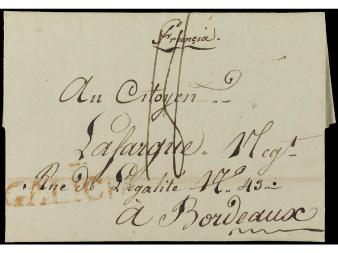 Francia
18
Au Citoyen
Lafargue Negt.
Rue de L'egalité No. 45
à Bordeaux